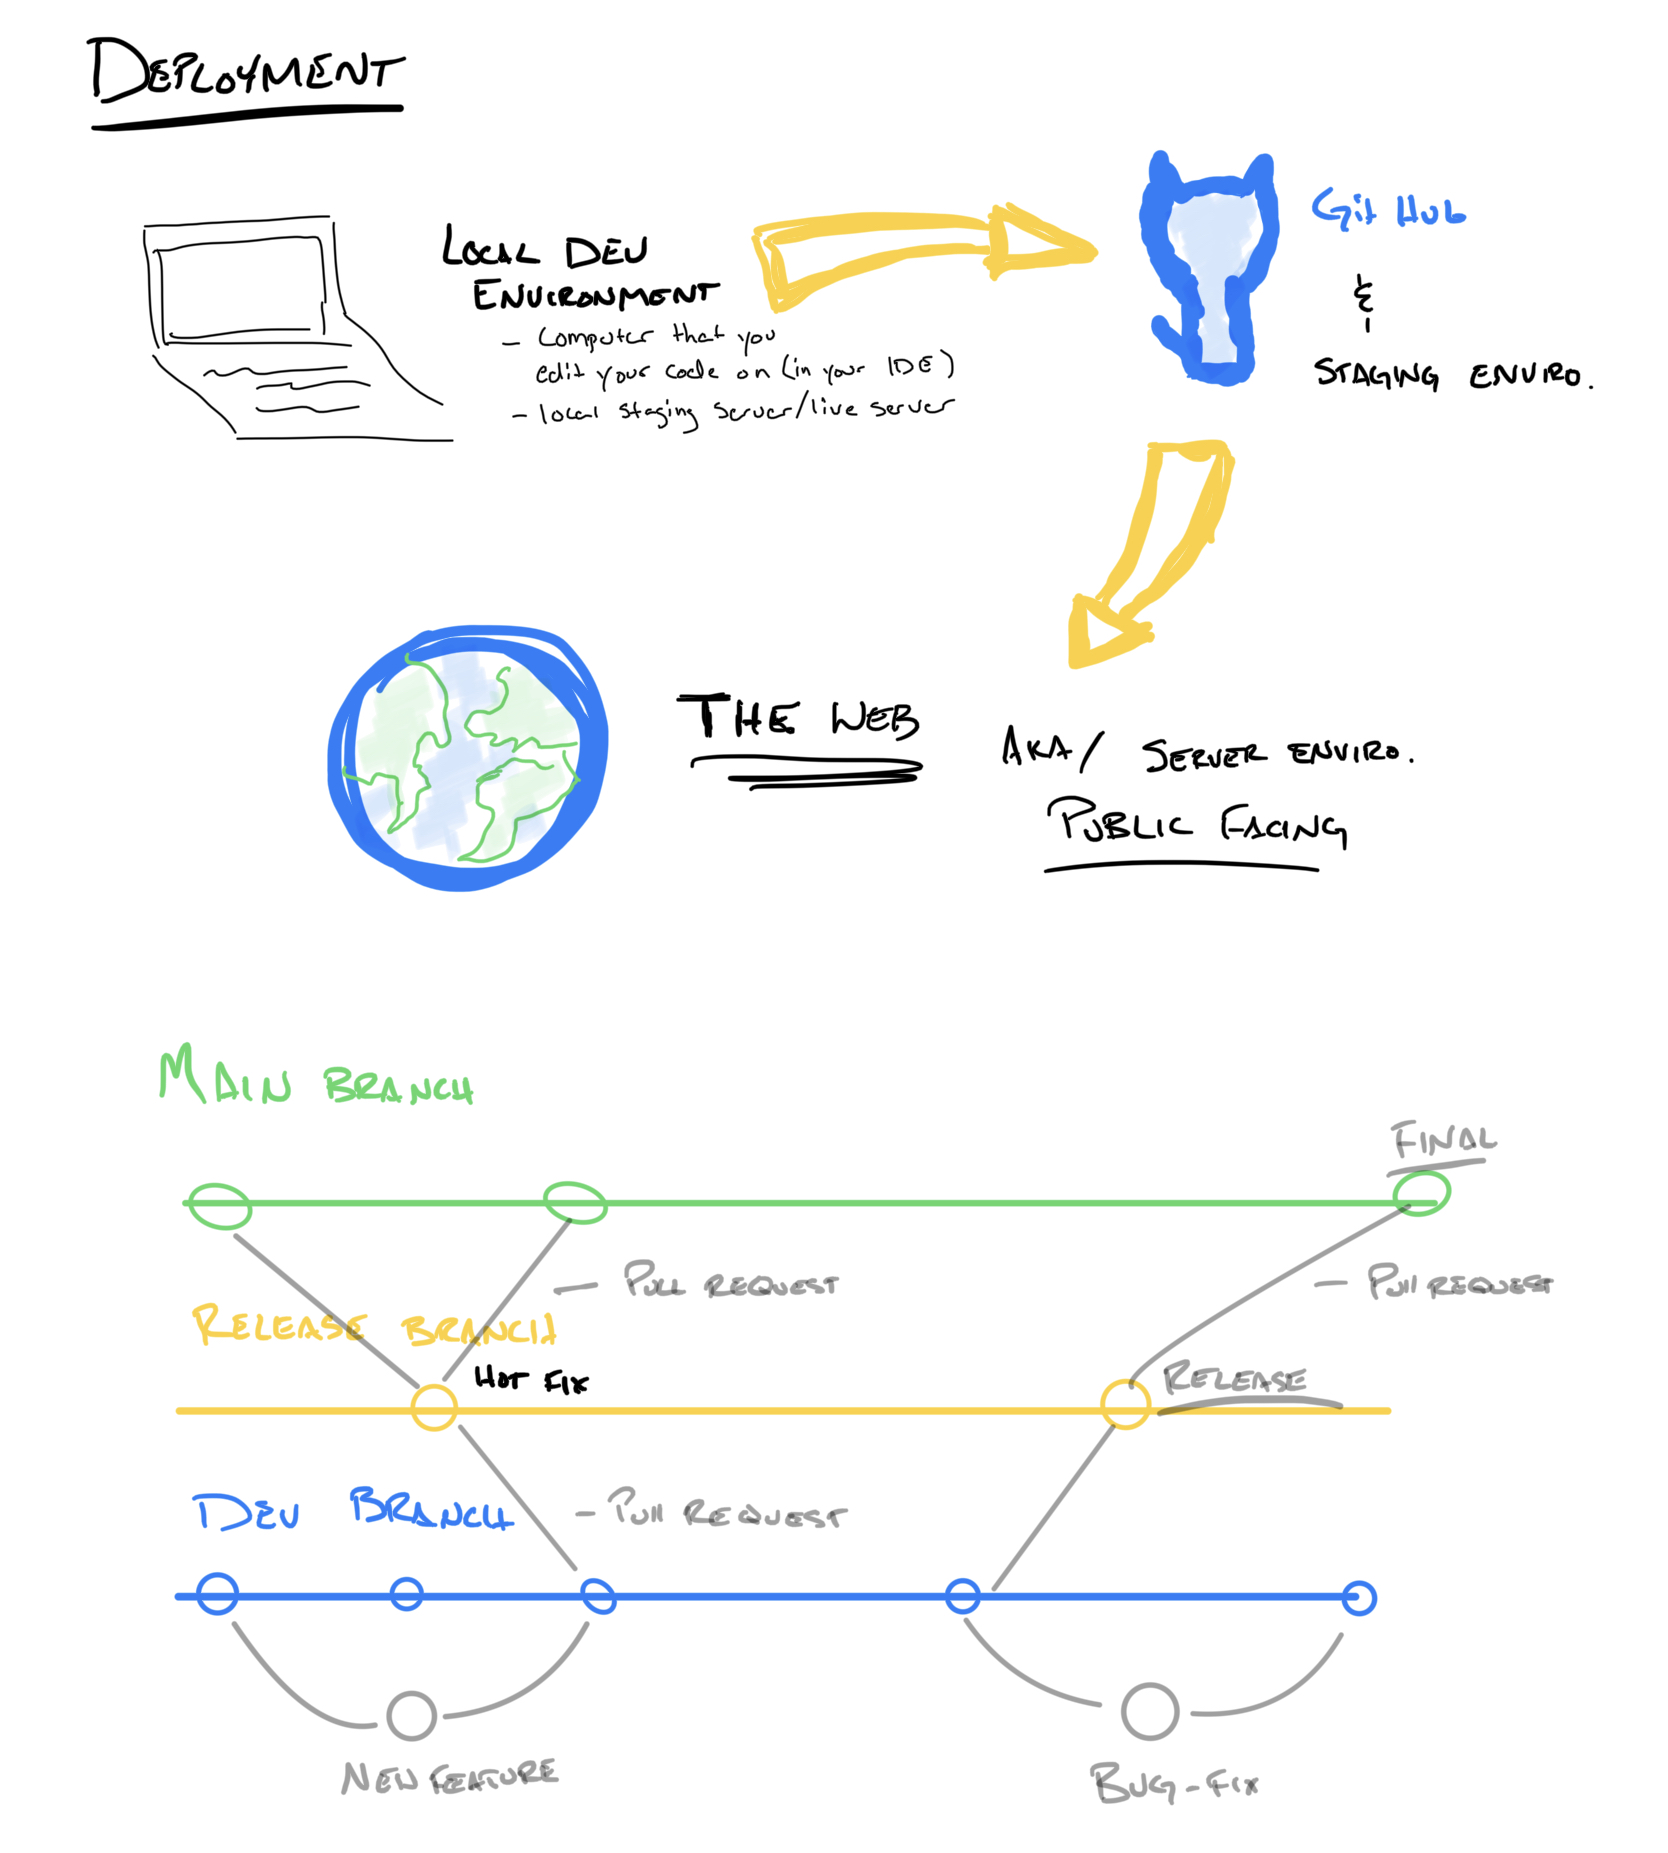 DEPLOYMENT
LOCAL DEV
ENVIRONMENT
- Computer that you
edit your code on (in your IDE)
- local staging server/live server
GitHub
&
STAGING ENVIRO.
THE WEB
AKA/ SERVER ENVIRO.
PUBLIC FACING
MAIN BRANCH
FINAL
- PULL REQUEST
- Pull REQUEST
RELEASE BRANCH
HOT FIX
RELEASE
DEV BRANCH
- Pull REQUEST
NEW FEATURE
BUG-FIX